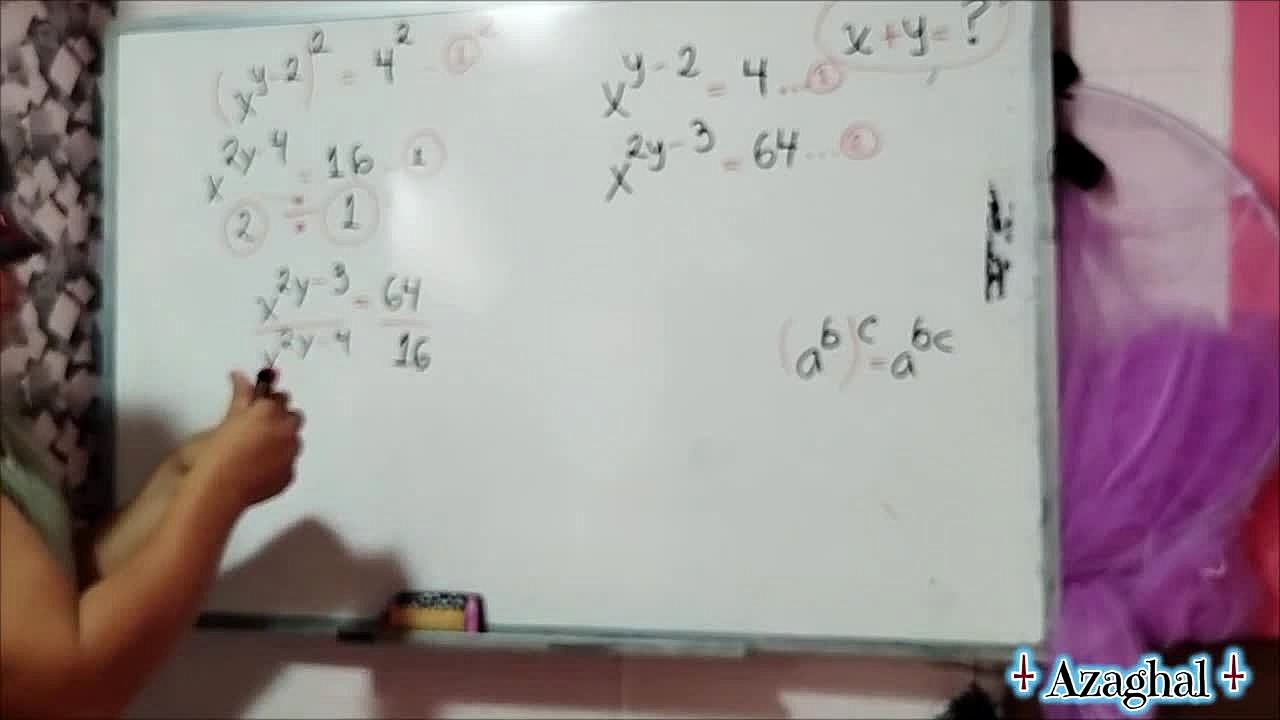 (x^{y-2})^2 = 4^2 ... ①^2
x^{2y-4} = 16 ... ①
② ÷ ①
x^{2y-3} / x^{2y-4} = 64 / 16
x + y = ?
x^{y-2} = 4 ... ①
x^{2y-3} = 64 ...
(a^b)^c = a^{bc}
Azaghal